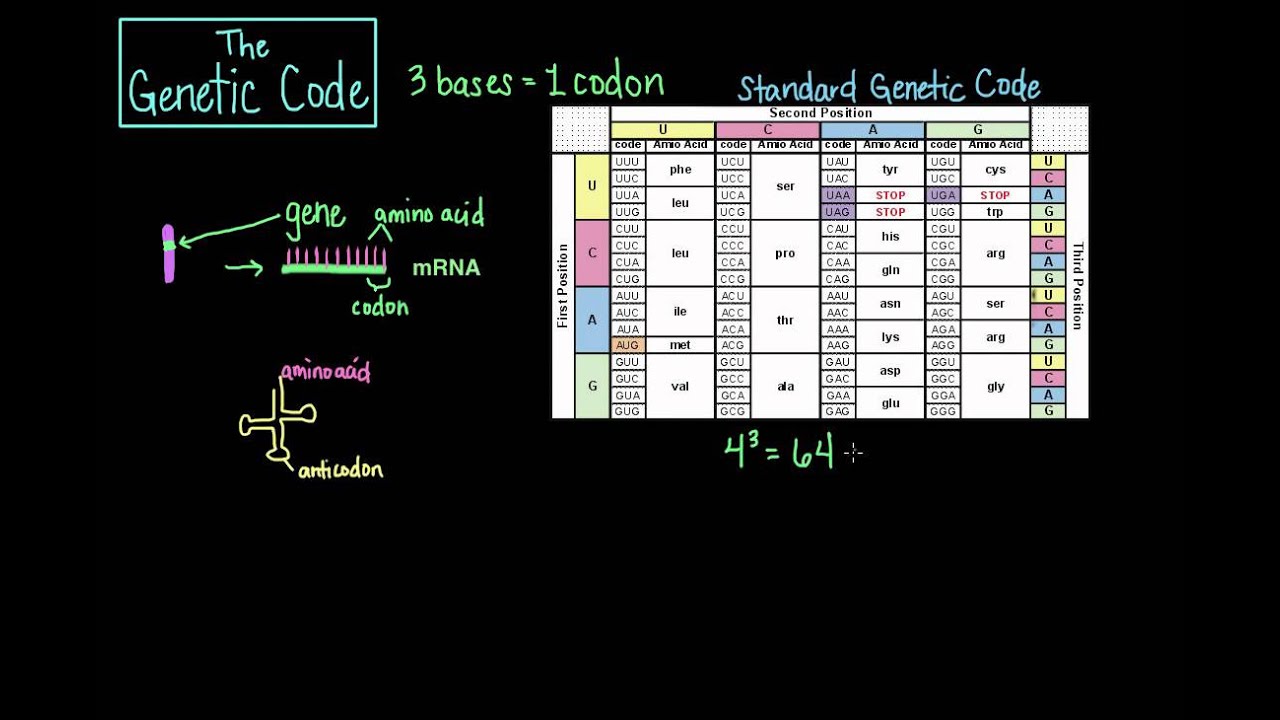 The
Genetic Code
3 bases = 1 codon
Standard Genetic Code
Second Position
U C A G
code Amio Acid code Amio Acid code Amio Acid code Amio Acid
First Position
Third Position
U
UUU phe UCU ser UAU tyr UGU cys U
UUC UCC UAC UGC C
UUA leu UCA UAA STOP UGA STOP A
UUG UCG UAG STOP UGG trp G
C
CUU leu CCU pro CAU his CGU arg U
CUC CCC CAC CGC C
CUA CCA CAA gln CGA A
CUG CCG CAG CGG G
A
AUU ile ACU thr AAU asn AGU ser U
AUC ACC AAC AGC C
AUA ACA AAA lys AGA arg A
AUG met ACG AAG AGG G
G
GUU val GCU ala GAU asp GGU gly U
GUC GCC GAC GGC C
GUA GCA GAA glu GGA A
GUG GCG GAG GGG G
gene amino acid
mRNA
codon
amino acid
anticodon
4³ = 64